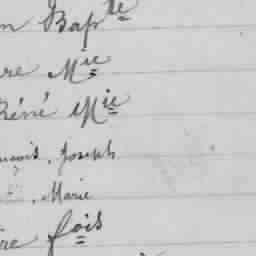 n Bap^te
re M^ie
Réné M^ie
nçois, Joseph
, Marie
re f^ois